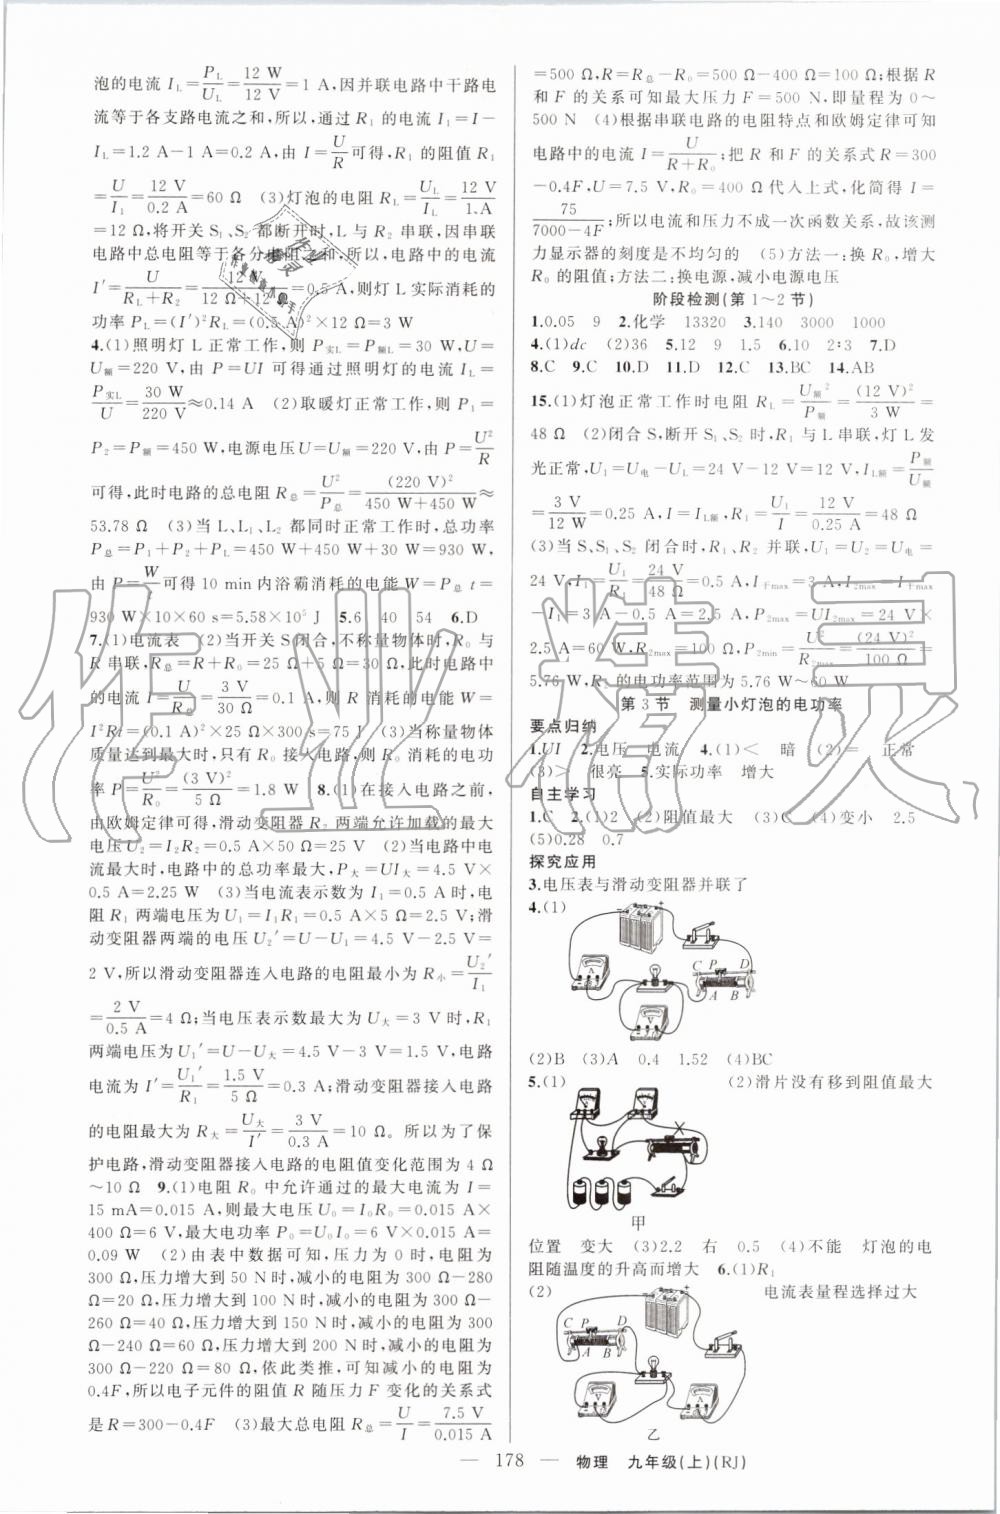 泡的电流 I_L=P_L/U_L=12 W/12 V=1 A,因并联电路中干路电
流等于各支路电流之和,所以,通过 R₁ 的电流 I₁=I-
I_L=1.2 A-1 A=0.2 A,由 I=U/R可得,R₁ 的阻值 R₁
=U/I₁=12 V/0.2 A=60 Ω (3)灯泡的电阻 R_L=U_L/I_L=12 V/1.A
=12 Ω,将开关 S₁、S₂ 都断开时,L 与 R₂ 串联,因串联
电路中总电阻等于各分电阻之和,所以,电路中的电流
I′=U/(R_L+R₂)=12 V/(12 Ω+12 Ω)=0.5 A,则灯 L 实际消耗的
功率 P_L=(I′)²R_L=(0.5 A)²×12 Ω=3 W
4.(1)照明灯 L 正常工作,则 P实L=P额L=30 W,U=
U额=220 V,由 P=UI 可得通过照明灯的电流 I_L=
P实L/U=30 W/220 V≈0.14 A (2)取暖灯正常工作,则 P₁=
P₂=P额=450 W,电源电压U=U额=220 V,由 P=U²/R
可得,此时电路的总电阻 R总=U²/P总=(220 V)²/(450 W+450 W)≈
53.78 Ω (3)当 L、L₁、L₂ 都同时正常工作时,总功率
P总=P₁+P₂+P_L=450 W+450 W+30 W=930 W,
由 P=W/t可得 10 min内浴霸消耗的电能 W=P总 t=
930 W×10×60 s=5.58×10⁵ J 5.6 40 54 6.D
7.(1)电流表 (2)当开关 S闭合,不称量物体时,R₀ 与
R 串联,R总=R+R₀=25 Ω+5 Ω=30 Ω,此时电路中
的电流 I=U/R总=3 V/30 Ω=0.1 A,则 R 消耗的电能 W=
I²Rt=(0.1 A)²×25 Ω×300 s=75 J (3)当称量物体
质量达到最大时,只有 R₀ 接入电路,则 R₀ 消耗的电功
率 P=U²/R₀=(3 V)²/5 Ω=1.8 W 8.(1)在接入电路之前,
由欧姆定律可得,滑动变阻器 R₂ 两端允许加载的最大
电压U₂=I₂R₂=0.5 A×50 Ω=25 V (2)当电路中电
流最大时,电路中的总功率最大,P大=UI大=4.5 V×
0.5 A=2.25 W (3)当电流表示数为 I₁=0.5 A 时,电
阻 R₁ 两端电压为 U₁=I₁R₁=0.5 A×5 Ω=2.5 V;滑
动变阻器两端的电压 U₂′=U-U₁=4.5 V-2.5 V=
2 V,所以滑动变阻器连入电路的电阻最小为 R小=U₂′/I₁
=2 V/0.5 A=4 Ω;当电压表示数最大为 U大=3 V时,R₁
两端电压为 U₁′=U-U大=4.5 V-3 V=1.5 V,电路
电流为 I′=U₁′/R₁=1.5 V/5 Ω=0.3 A;滑动变阻器接入电路
的电阻最大为 R大=U大/I′=3 V/0.3 A=10 Ω。所以为了保
护电路,滑动变阻器接入电路的电阻值变化范围为 4 Ω
~10 Ω 9.(1)电阻 R₀ 中允许通过的最大电流为 I=
15 mA=0.015 A,则最大电压 U₀=I₀R₀=0.015 A×
400 Ω=6 V,最大电功率 P₀=U₀I₀=6 V×0.015 A=
0.09 W (2)由表中数据可知,压力为 0 时,电阻为
300 Ω,压力增大到 50 N 时,减小的电阻为 300 Ω-280
Ω=20 Ω,压力增大到 100 N 时,减小的电阻为 300 Ω-
260 Ω=40 Ω,压力增大到 150 N时,减小的电阻为 300
Ω-240 Ω=60 Ω,压力增大到 200 N 时,减小的电阻为
300 Ω-220 Ω=80 Ω,依此类推,可知减小的电阻为
0.4F,所以电子元件的阻值 R 随压力 F 变化的关系式
是 R=300-0.4F (3)最大总电阻 R总=U/I=7.5 V/0.015 A
=500 Ω,R=R总-R₀=500 Ω-400 Ω=100 Ω;根据 R
和 F 的关系可知最大压力 F=500 N,即量程为 0~
500 N (4)根据串联电路的电阻特点和欧姆定律可知
电路中的电流 I=U/(R+R₀);把 R 和 F 的关系式 R=300
-0.4F,U=7.5 V,R₀=400 Ω 代入上式,化简得 I=
75/(7000-4F);所以电流和压力不成一次函数关系,故该测
力显示器的刻度是不均匀的 (5)方法一:换 R₀,增大
R₀ 的阻值;方法二:换电源,减小电源电压
阶段检测(第 1~2 节)
1.0.05 9 2.化学 13320 3.140 3000 1000
4.(1)dc (2)36 5.12 9 1.5 6.10 2∶3 7.D
8.C 9.C 10.D 11.D 12.C 13.BC 14.AB
15.(1)灯泡正常工作时电阻 R_L=U额²/P额=(12 V)²/3 W=
48 Ω (2)闭合 S,断开 S₁、S₂ 时,R₁ 与 L 串联,灯 L 发
光正常,U₁=U电-U_L=24 V-12 V=12 V,I_L额=P额/U额
=3 V/12 W=0.25 A,I=I_L额,R₁=U₁/I=12 V/0.25 A=48 Ω
(3)当 S、S₁、S₂ 闭合时,R₁、R₂ 并联,U₁=U₂=U电=
24 V,I₁=U₁/R₁=24 V/48 Ω=0.5 A,I干max=3 A,I₂max=I干max
-I₁=3 A-0.5 A=2.5 A,P₂max=UI₂max=24 V×
2.5 A=60 W,R₂max=100 Ω,P₂min=U₂²/R₂max=(24 V)²/100 Ω=
5.76 W,R₂ 的电功率范围为 5.76 W~60 W
第 3 节 测量小灯泡的电功率
要点归纳
1.UI 2.电压 电流 4.(1)< 暗 (2)= 正常
(3)> 很亮 5.实际功率 增大
自主学习
1.C 2.(1)2 (2)阻值最大 (3)C (4)变小 2.5
(5)0.28 0.7
探究应用
3.电压表与滑动变阻器并联了
4.(1)
C P D
A B
A
V
(2)B (3)A 0.4 1.52 (4)BC
5.(1) (2)滑片没有移到阻值最大
甲
位置 变大 (3)2.2 右 0.5 (4)不能 灯泡的电
阻随温度的升高而增大 6.(1)R₁
(2) 电流表量程选择过大
C P D
A B
乙
178 物理 九年级(上)(RJ)
作业精灵